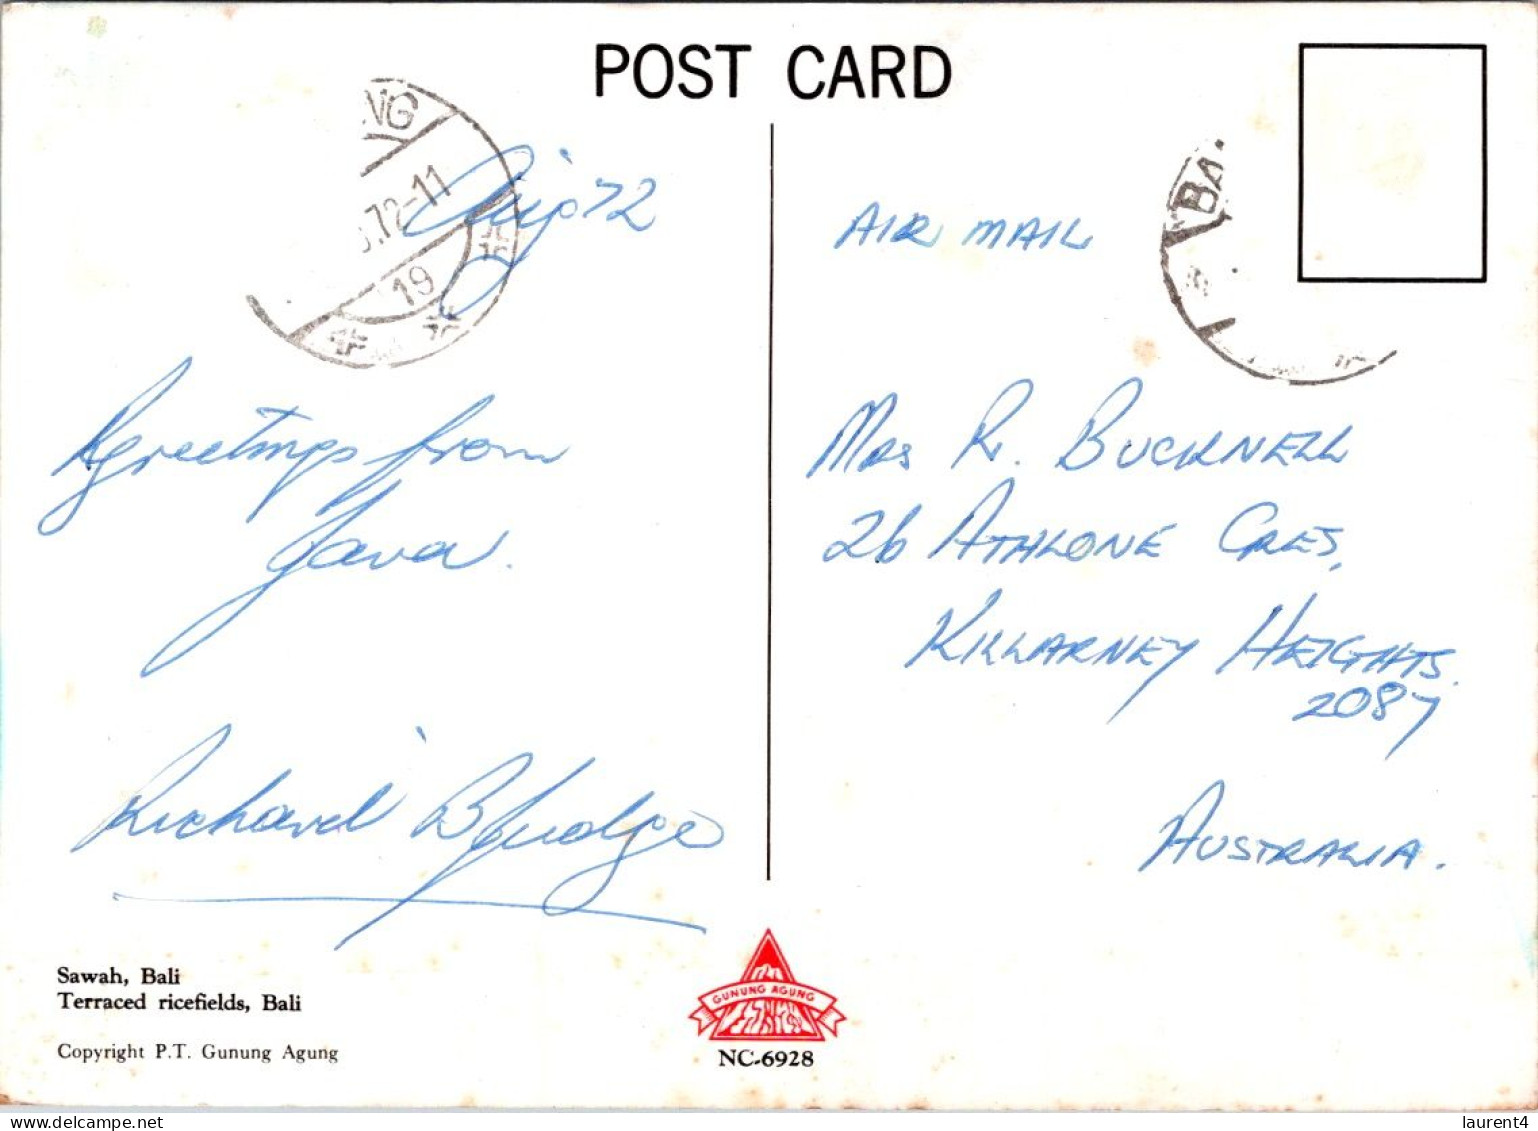 POST CARD
NG
.72-11
19
Aug 72
BA
AIR MAIL
Greetings from
Java.
Mrs R. BUCKNELL
26 ATHLONE CRES,
KILLARNEY HEIGHTS.
2087
AUSTRALIA.
Richard
Sawah, Bali
Terraced ricefields, Bali
Copyright P.T. Gunung Agung
GUNUNG AGUNG
NC-6928
laurent4